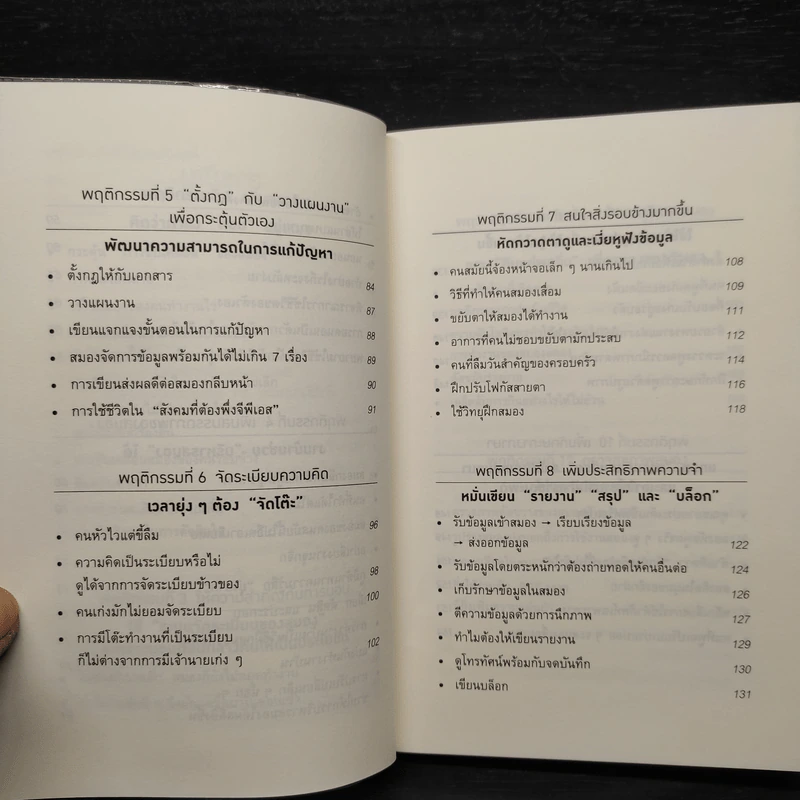 พฤติกรรมที่ 5 "ตั้งกฎ" กับ "วางแผนงาน"
เพื่อกระตุ้นตัวเอง
พัฒนาความสามารถในการแก้ปัญหา
• ตั้งกฎให้กับเอกสาร 84
• วางแผนงาน 87
• เขียนแจกแจงขั้นตอนในการแก้ปัญหา 88
• สมองจัดการข้อมูลพร้อมกันได้ไม่เกิน 7 เรื่อง 89
• การเขียนส่งผลดีต่อสมองกลีบหน้า 90
• การใช้ชีวิตใน "สังคมที่ต้องพึ่งจีพีเอส" 91
พฤติกรรมที่ 6 จัดระเบียบความคิด
เวลายุ่ง ๆ ต้อง "จัดโต๊ะ"
• คนหัวไวแต่ขี้ลืม 96
• ความคิดเป็นระเบียบหรือไม่
ดูได้จากการจัดระเบียบข้าวของ 98
• คนเก่งมักไม่ยอมจัดระเบียบ 100
• การมีโต๊ะทำงานที่เป็นระเบียบ
ก็ไม่ต่างจากการมีเจ้านายเก่ง ๆ 102
พฤติกรรมที่ 7 สนใจสิ่งรอบข้างมากขึ้น
หัดกวาดตาดูและเงี่ยหูฟังข้อมูล
• คนสมัยนี้จ้องหน้าจอเล็ก ๆ นานเกินไป 108
• วิธีที่ทำให้คนสมองเสื่อม 109
• ขยับตาให้สมองได้ทำงาน 111
• อาการที่คนไม่ชอบขยับตามักประสบ 112
• คนที่ลืมวันสำคัญของครอบครัว 114
• ฝึกปรับโฟกัสสายตา 116
• ใช้วิทยุฝึกสมอง 118
พฤติกรรมที่ 8 เพิ่มประสิทธิภาพความจำ
หมั่นเขียน "รายงาน" "สรุป" และ "บล็อก"
• รับข้อมูลเข้าสมอง → เรียบเรียงข้อมูล
→ ส่งออกข้อมูล 122
• รับข้อมูลโดยตระหนักว่าต้องถ่ายทอดให้คนอื่นต่อ 124
• เก็บรักษาข้อมูลในสมอง 126
• ตีความข้อมูลด้วยการนึกภาพ 127
• ทำไมต้องให้เขียนรายงาน 129
• ดูโทรทัศน์พร้อมกับจดบันทึก 130
• เขียนบล็อก 131